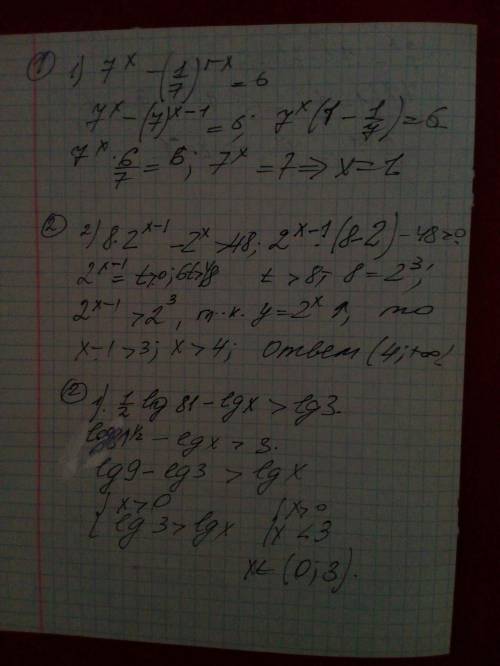 ① 1) 7^x − (1/7)^{1−x} = 6
7^x − (7)^{x−1} = 6; 7^x(1 − 1/7) = 6
7^x · 6/7 = 6; 7^x = 7 ⇒ x = 1
② 2) 8·2^{x−1} − 2^x > 48; 2^{x−1}·(8−2) − 48 > 0
2^{x−1} = t > 0; 6t > 48 t > 8; 8 = 2^3;
2^{x−1} > 2^3, т.к. y = 2^x ↑, то
x−1 > 3; x > 4; Ответ (4; +∞(
② 1). 1/2 lg 81 − lg x > lg 3.
− lg x > 3.
lg 9 − lg 3 > lg x
{ x > 0 { x > 0
{ lg 3 > lg x { x < 3
x ∈ (0; 3).